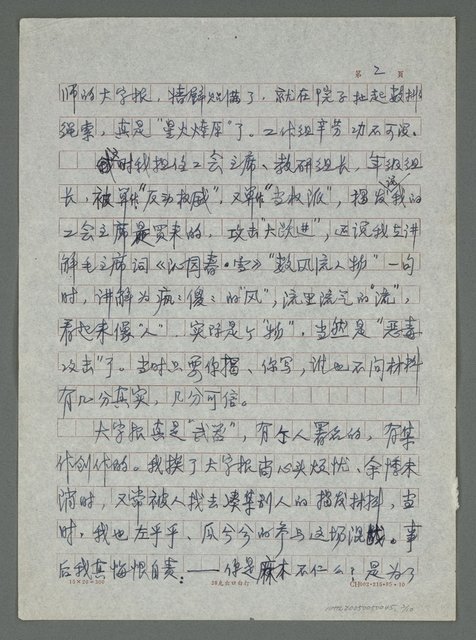 第 2 頁
师的大字报，墙壁贴满了，就在院子扯起数排
绳索，真是"星火燎原"了。工作组辛劳功不可没。
时我担任工会主席、教研组长，年级组
长，被算作"反动权威"，又算作"当权派"，揭发我的
工会主席是买来的，攻击"大跃进"，还说我在讲
解毛主席词《沁园春·雪》"数风流人物"一句
时，讲解为疯疯傻傻的"风"，流里流气的"流"，
看起来像"人"，实际是个"物"，当然是"恶毒
攻击"了。当时只要你揭、你写，谁也不问材料
有几分真实，几分可信。
大字报真是"武器"，有个人署名的，有集
体创作的。我挨了大字报尚心头烦忧、余悸未
消时，又常被人找去凑集别人的揭发材料，当
时，我也左乎乎、瓜兮兮的参与这场混战。事
后我真悔恨自责：——你是麻木不仁么？是为了
15×20=300